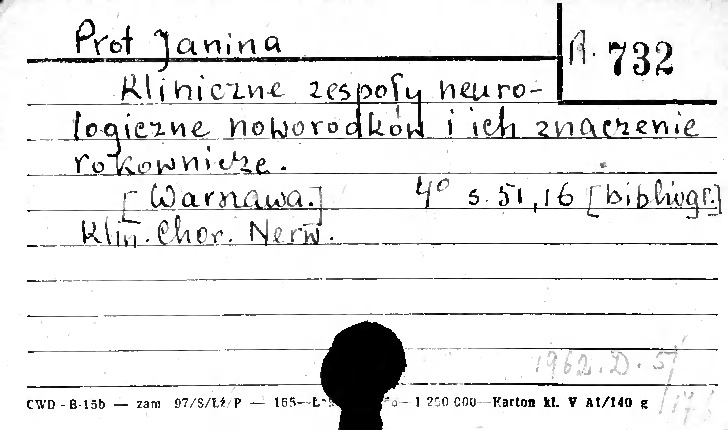 Prot Janina
R. 732
Kliniczne zespoły neuro-
logiczne noworodków i ich znaczenie
rokownicze.
[Warszawa.] 4° s. 51, 16 [bibliogr.]
Klin. Chor. Nerw.
1962. D. 5/
CWD - B-15b — zam 97/S/Łż/P — 165— — 1 200 000—Karton kl. V A1/140 g